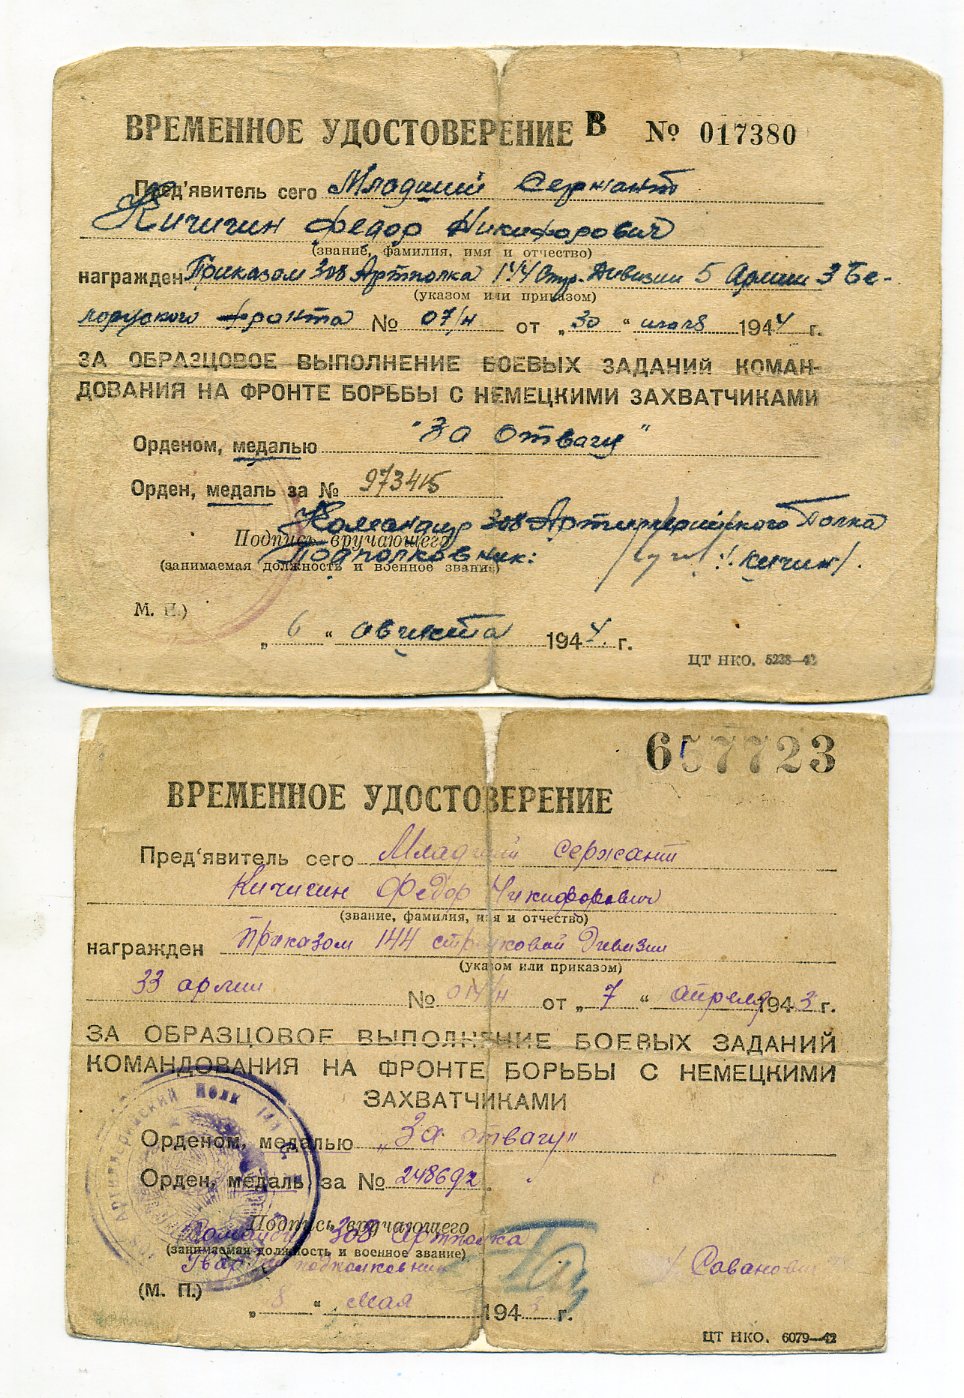 ВРЕМЕННОЕ УДОСТОВЕРЕНИЕ В № 017380
Пред'явитель сего Младший Сержант
Кичигин Федор Никифорович
(звание, фамилия, имя и отчество)
награжден Приказом 308 Артполка 144 Стр. Дивизии 5 Армии 3 Бе-
(указом или приказом)
лоруского фронта № 07/н от „30" июля 1944 г.
ЗА ОБРАЗЦОВОЕ ВЫПОЛНЕНИЕ БОЕВЫХ ЗАДАНИЙ КОМАН-
ДОВАНИЯ НА ФРОНТЕ БОРЬБЫ С НЕМЕЦКИМИ ЗАХВАТЧИКАМИ
Орденом, медалью "За отвагу"
Орден, медаль за № 973415
Командир 308 Артиллерийского Полка
Подпись вручающего
Подполковник: /Кичин/.
(занимаемая должность и военное звание)
М. П.)
„6" августа 1944 г.
ЦТ НКО. 5238—42
657723
ВРЕМЕННОЕ УДОСТОВЕРЕНИЕ
Пред'явитель сего Младший сержант
Кичигин Федор Никифорович
(звание, фамилия, имя и отчество)
награжден Приказом 144 стрелковой Дивизии
(указом или приказом)
33 армии № 04/н от „7" апреля 1943 г.
ЗА ОБРАЗЦОВОЕ ВЫПОЛНЕНИЕ БОЕВЫХ ЗАДАНИЙ
КОМАНДОВАНИЯ НА ФРОНТЕ БОРЬБЫ С НЕМЕЦКИМИ
ЗАХВАТЧИКАМИ
Орденом, медалью „За отвагу"
Орден, медаль за № 248692
Подпись вручающего
Командир 308 Артполка
(занимаемая должность и военное звание)
Гвардии подполковник
(М. П.)
„8" мая 1943 г.
ЦТ НКО. 6079—42